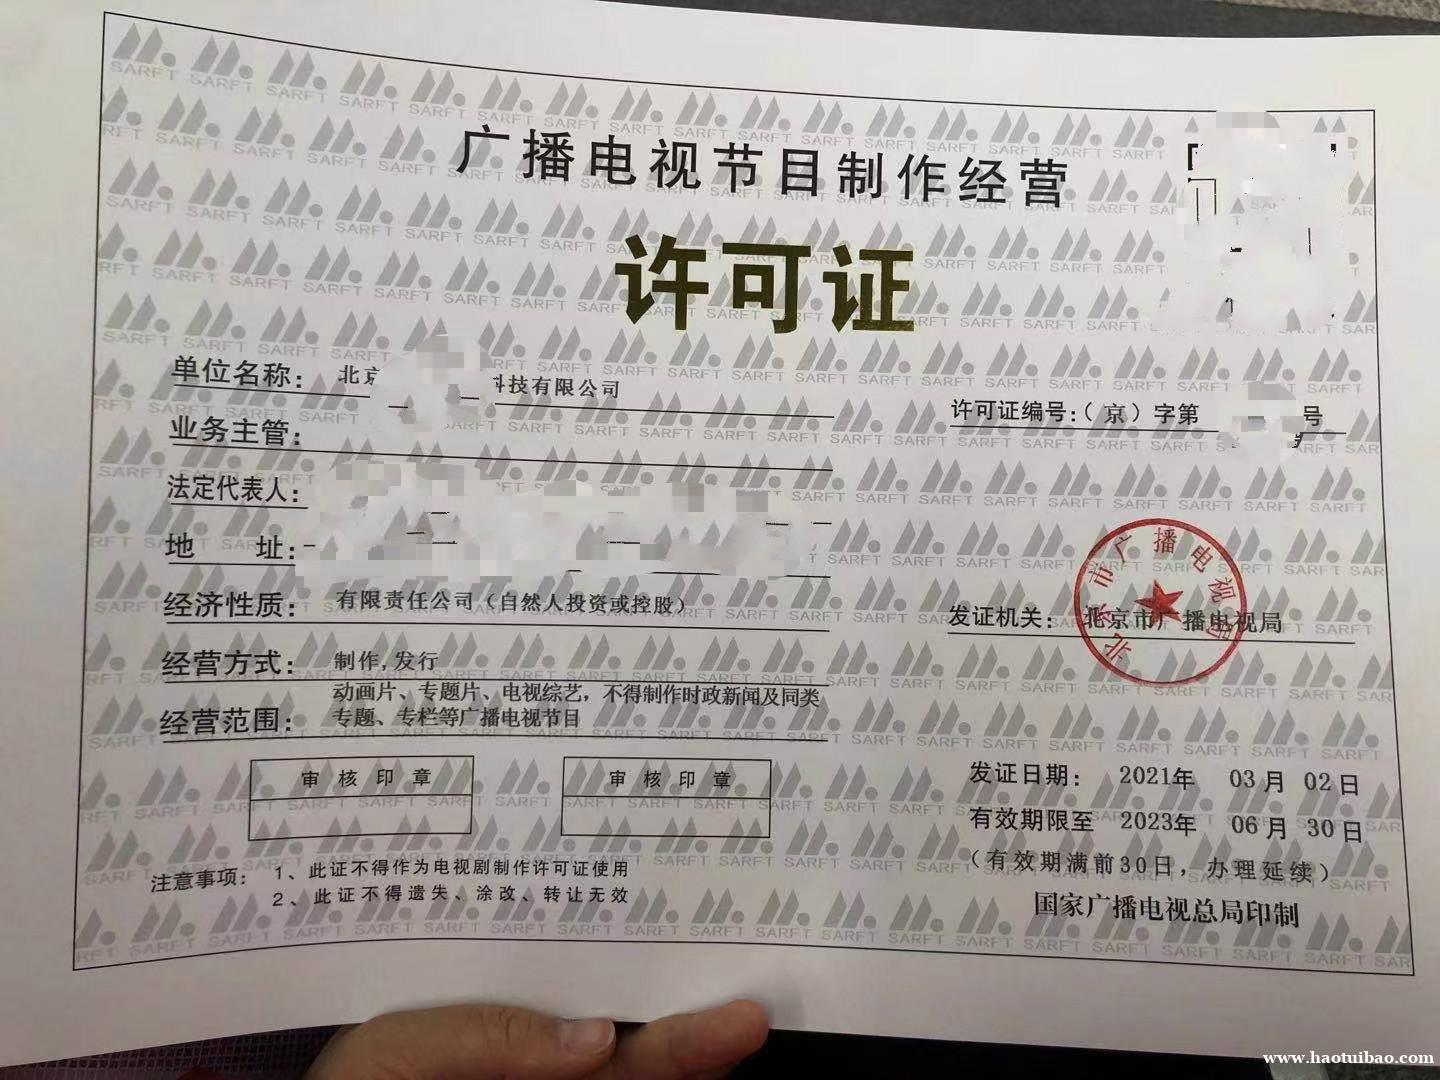 广播电视节目制作经营
许可证
单位名称： 北京 科技有限公司
许可证编号：（京）字第 号
业务主管：
法定代表人：
地 址：
经济性质： 有限责任公司（自然人投资或控股）
发证机关： 北京市广播电视局
北京市广播电视局
经营方式： 制作,发行
经营范围： 动画片、专题片、电视综艺，不得制作时政新闻及同类
专题、专栏等广播电视节目
审核印章 审核印章
发证日期： 2021年 03月 02日
有效期限至 2023年 06月 30日
（有效期满前30日，办理延续）
注意事项： 1、此证不得作为电视剧制作许可证使用
2、此证不得遗失、涂改、转让无效
国家广播电视总局印制
SARFT
www.haotuibao.com